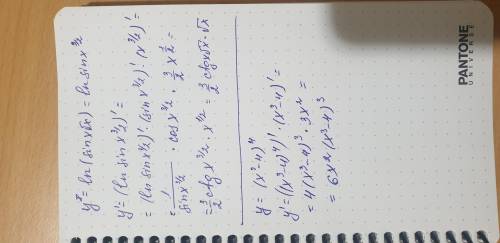 y = ln(sin x√x) = ln sin x^3/2
y' = (ln sin x^3/2)' =
= (ln sin x^3/2)' · (sin x^3/2)' · (x^3/2)' =
= 1/sin x^3/2 · cos x^3/2 · 3/2 x^1/2 =
= 3/2 ctg x^3/2 · x^1/2 = 3/2 ctg x√x · √x
y = (x³-4)⁴
y' = ((x³-4)⁴)' · (x³-4)' =
= 4(x³-4)³ · 3x² =
= 6x²(x³-4)³
PANTONE
UNIVERSE